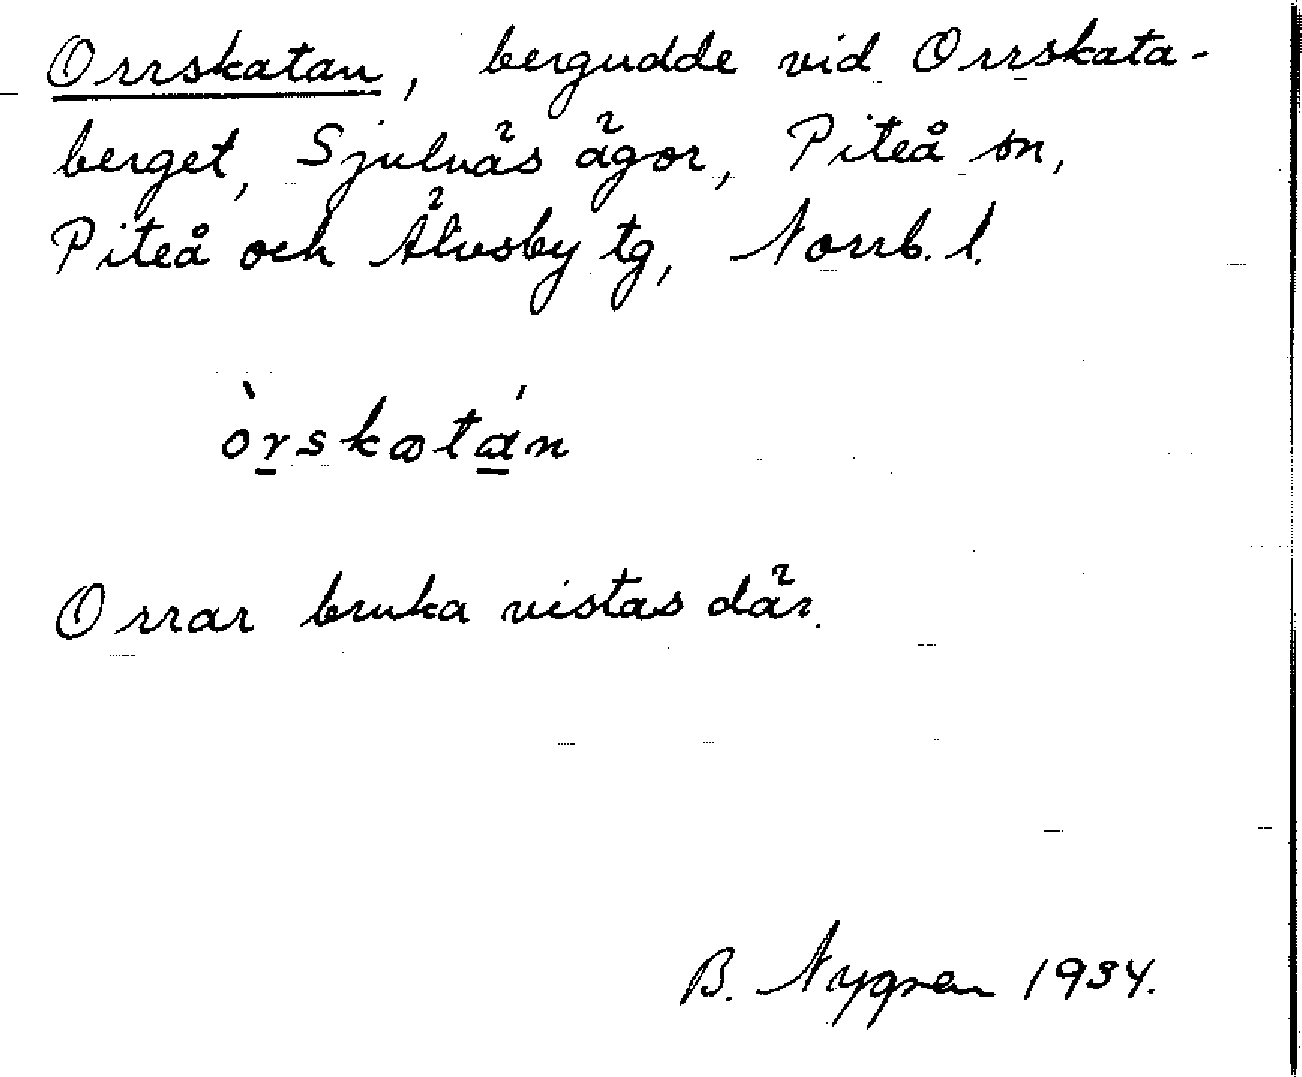 Orrskatan, bergudde vid Orrskata-
berget, Sjulnäs ägor, Piteå sn,
Piteå och Älvsby tg, Norrb. l.
òrskatán
Orrar bruka vistas där.
B. Nygren 1934.